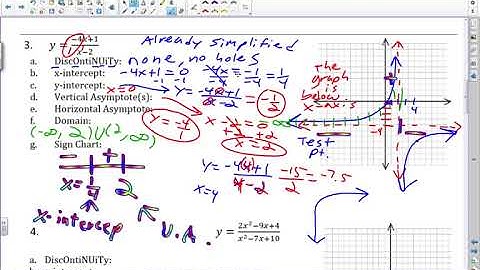 3. y = -4x+1 / x-2 Already simplified
a. DiscOntiNUiTy: none, no holes
b. x-intercept: -4x+1=0 -4x/-4 = -1/-4 = 1/4
c. y-intercept: x=0 -4x+1 / x-2 = -1/2
d. Vertical Asymptote(s): x-2=0 +2 +2 x=2
e. Horizontal Asymptote: y=-4
f. Domain: (-∞, 2) U (2, ∞)
g. Sign Chart:
- + -
x=1/4 2
x-intercep V.A.
The graph is below x-axis
Test pt.
y = -4(4)+1 / 4-2 = -15/2 = -7.5
x=4
4. y = 2x²-9x+4 / x²-7x+10
a. DiscOntiNUiTy: